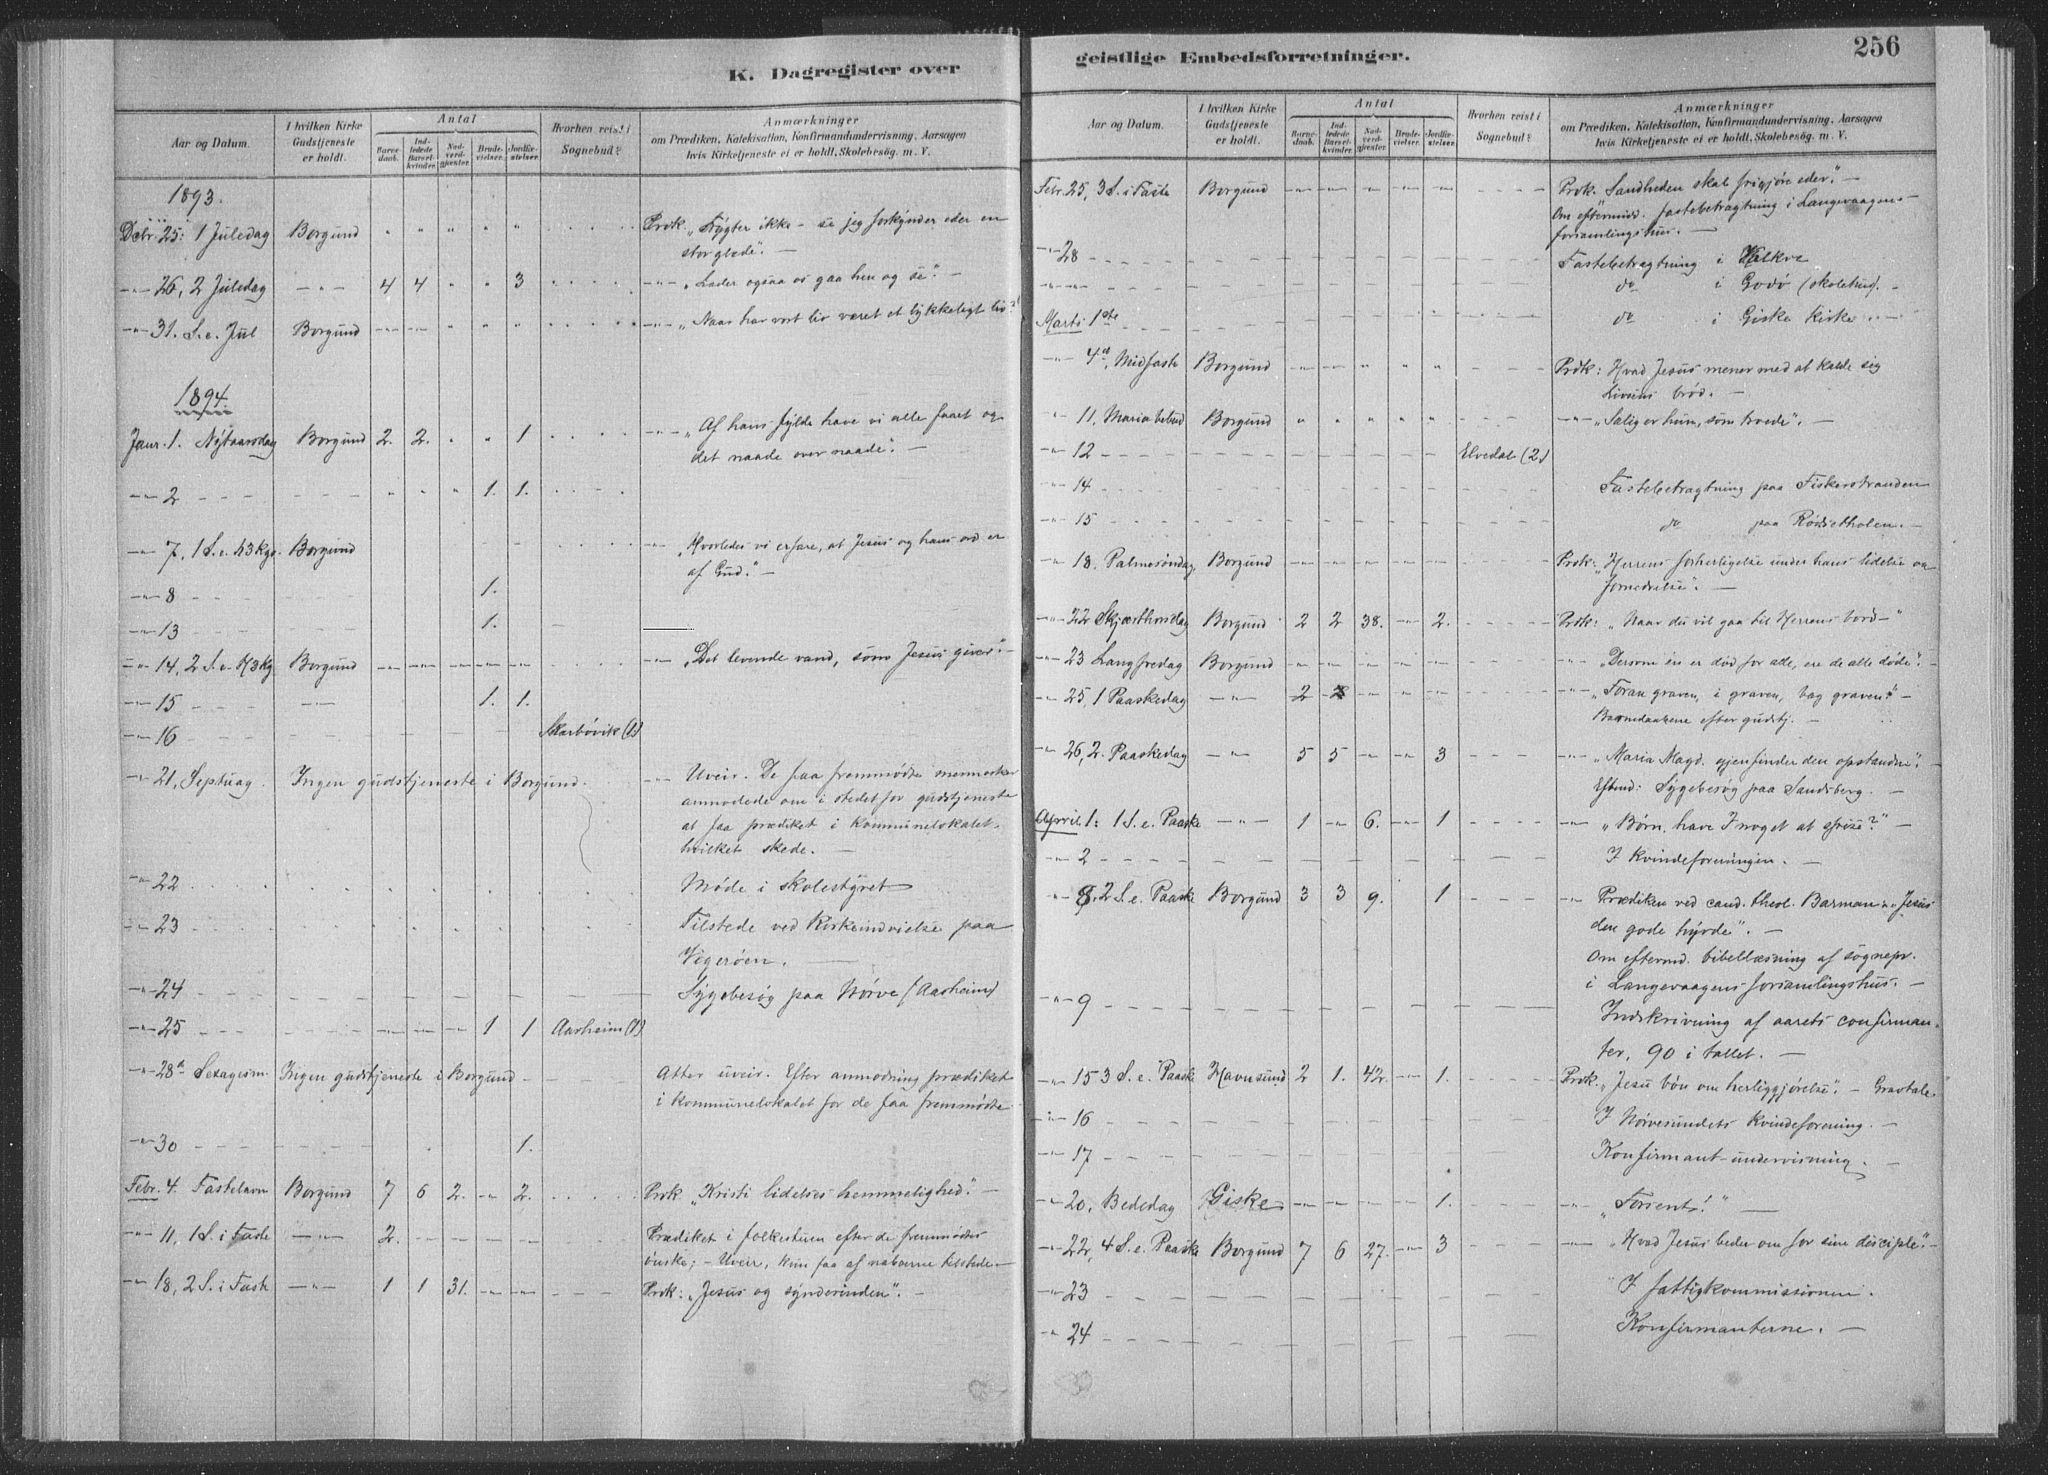 K. Dagregister over
Aar og Datum. I hvilken Kirke Gudstjeneste er holdt. Antal Barnedaab. Indledede Barselkvinder. Nadverdgjester. Brudevielser. Jordfæstelser. Hvorhen reist i Sognebud? Anmærkninger om Prædiken, Katekisation, Konfirmandundervisning, Aarsagen hvis Kirketjeneste ei er holdt, Skolebesøg. m. V.
1893.
Decbr. 25: 1 Juledag Borgund " " " " " Prdk. „Frygter ikke – se jeg forkynder eder en
stor glæde". –
-"- 26, 2 Juledag -"- 4 4 " " 3 -"- „Lader ogsaa os gaa hen og se". –
-"- 31. S. e. Jul Borgund " " " " " -"- „Naar har vort liv været et lykkeligt liv?"
1894.
Janr. 1. Nytaarsdag Borgund 2. 2. " " 1 -"- „Af hans fylde have vi alle faaet og
det naade over naade". –
-"- 2 " " " 1. 1.
-"- 7, 1 S. e. H3kgr. Borgund -"- „Hvorledes vi erfare, at Jesus og hans ord er
af Gud." –
-"- 8 1.
-"- 13 1.
-"- 14, 2 S. e. H3kg. Borgund -"- „Det levende vand, som Jesus giver". –
-"- 15 1. 1.
-"- 16 Skarbøvik (1)
-"- 21, Septuag. Ingen gudstjeneste i Borgund. -"- Uveir. De faa fremmødte mennesker
anmodede om i stedet for gudstjeneste
at faa prædiket i kommunelokalet.
hvilket skede. –
-"- 22 Møde i skolestyret
-"- 23 Tilstede ved Kirkeindvielse paa
Vigerøen. –
-"- 24 Sygebesøg paa Nørve (Aarheim)
-"- 25 1 1 Aarheim (1)
-"- 28de Sexagesm. Ingen gudstjeneste i Borgund Atter uveir. Efter anmodning prædiket
i kommunelokalet for de faa fremmødte
-"- 30 1.
Febr. 4. Fastelavn Borgund 7 6 2. -"- 2. Prdk. „Kristi lidelses hemmelighed". –
-"- 11, 1 S. i Faste -"- 2. Prædiket i folkestuen efter de fremmødtes
ønske; – Uveir, kun faa af naboerne tilstede –
-"- 18, 2 S. i Faste -"- 1 1 31. -"- -"- Prdk: „Jesus og synderinden". –
geistlige Embedsforretninger.
256
Aar og Datum. I hvilken Kirke Gudstjeneste er holdt. Antal Barnedaab. Indledede Barselkvinder. Nadverdgjester. Brudevielser. Jordfæstelser. Hvorhen reist i Sognebud? Anmærkninger om Prædiken, Katekisation, Konfirmandundervisning, Aarsagen hvis Kirketjeneste ei er holdt. Skolebesøg. m. V.
Febr. 25, 3 S. i Faste Borgund Prdk. „Sandheden skal frigjøre eder". –
Om eftermidd. fastebetragtning i Langevaagens
forsamlingshus. –
-"- 28 Fastebetragtning i Valkve
-"-"- do i Godø (skolehus). –
Marts 1ste do i Giske kirke. –
-"- 4de, Midfaste Borgund Prdk: Hvad Jesus mener med at kalde sig
Livsens brød. –
-"- 11. Maria bebud Borgund " " " " " -"- „Salig er hun, som troede". –
-"- 12 Elvedal (2)
-"- 14 Fastebetragtning paa Fiskerstranden
-"- 15 do paa Rødsetholen. –
-"- 18. Palmesøndag Borgund Prdk: „Herrens forherligelse under hans lidelse og
fornedrelse". –
-"- 22 Skjærthorsdag Borgund 2 2 38. -"- 2. Prdk: „Naar du vil gaa til Herrens bord –"
-"- 23 Langfredag Borgund -"- „Dersom én er død for alle, ere de alle døde". –
-"- 25, 1 Paaskedag -"- 2 2 -"- „Foran graven, i graven, bag graven". –
Barnedaabene efter gudstj. –
-"- 26, 2. Paaskedag -"- 5 5 -"- -"- 3 -"- „Maria Magd. gjenfinder den opstandne".
Eftmd: Sygebesøg paa Sandsberg. –
April 1: 1 S. e. Paaske -"- 1 -"- 6. -"- 1 -"- „Børn, have I noget at spise?" –
-"- 2 I kvindeforeningen. –
-"- 8, 2 S. e. Paaske Borgund 3 3 9. 1 -"- Prædiken ved cand. theol. Barman: „Jesus
den gode hyrde". –
Om eftermd. bibellæsning af sognepr.
i Langevaagens forsamlingshus. –
-"- 9 Indskrivning af aarets confirman-
ter, 90 i tallet. –
-"- 15 3 S. e. Paaske Havnsund 2 1. 42. -"- 1. Prdk. „Jesu bøn om herliggjørelse". – Gravtale.
-"- 16 I Nørvesundets kvindeforening. –
-"- 17 Konfirmant-undervisning. –
-"- 20, Bededag Giske 1. -"- „Forsent!" –
-"- 22, 4 S. e. Paaske Borgund 7 6 27. -"- 3 -"- „Hvad Jesus beder om for sine disciple". –
-"- 23 I fattigkommissionen.
-"- 24 Konfirmanterne. –